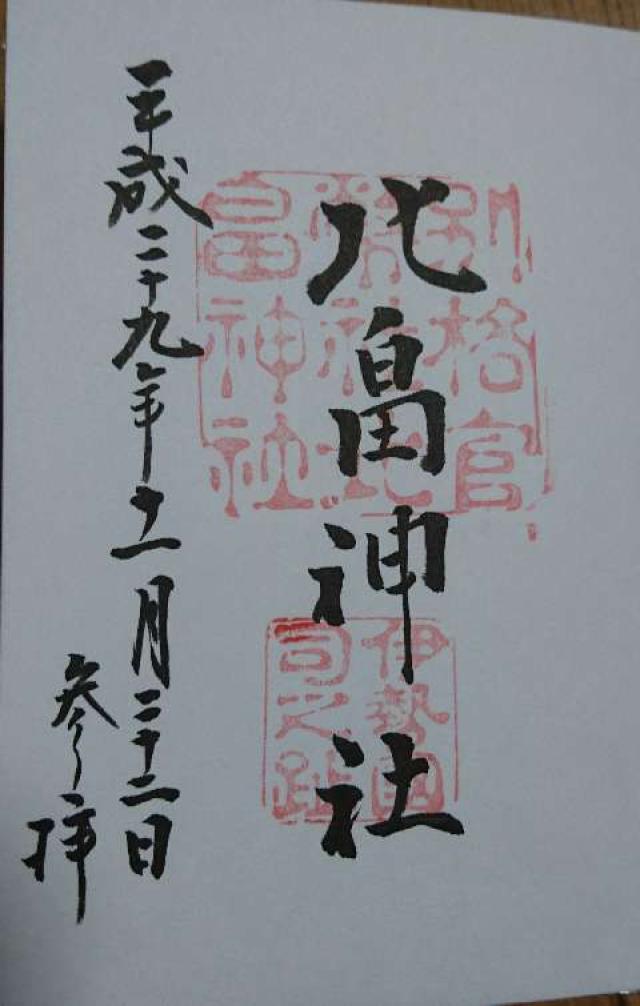 北畠神社
別格官
幣社北
畠神社
伊勢國
司之趾
平成二十九年十一月二十二日
参拝